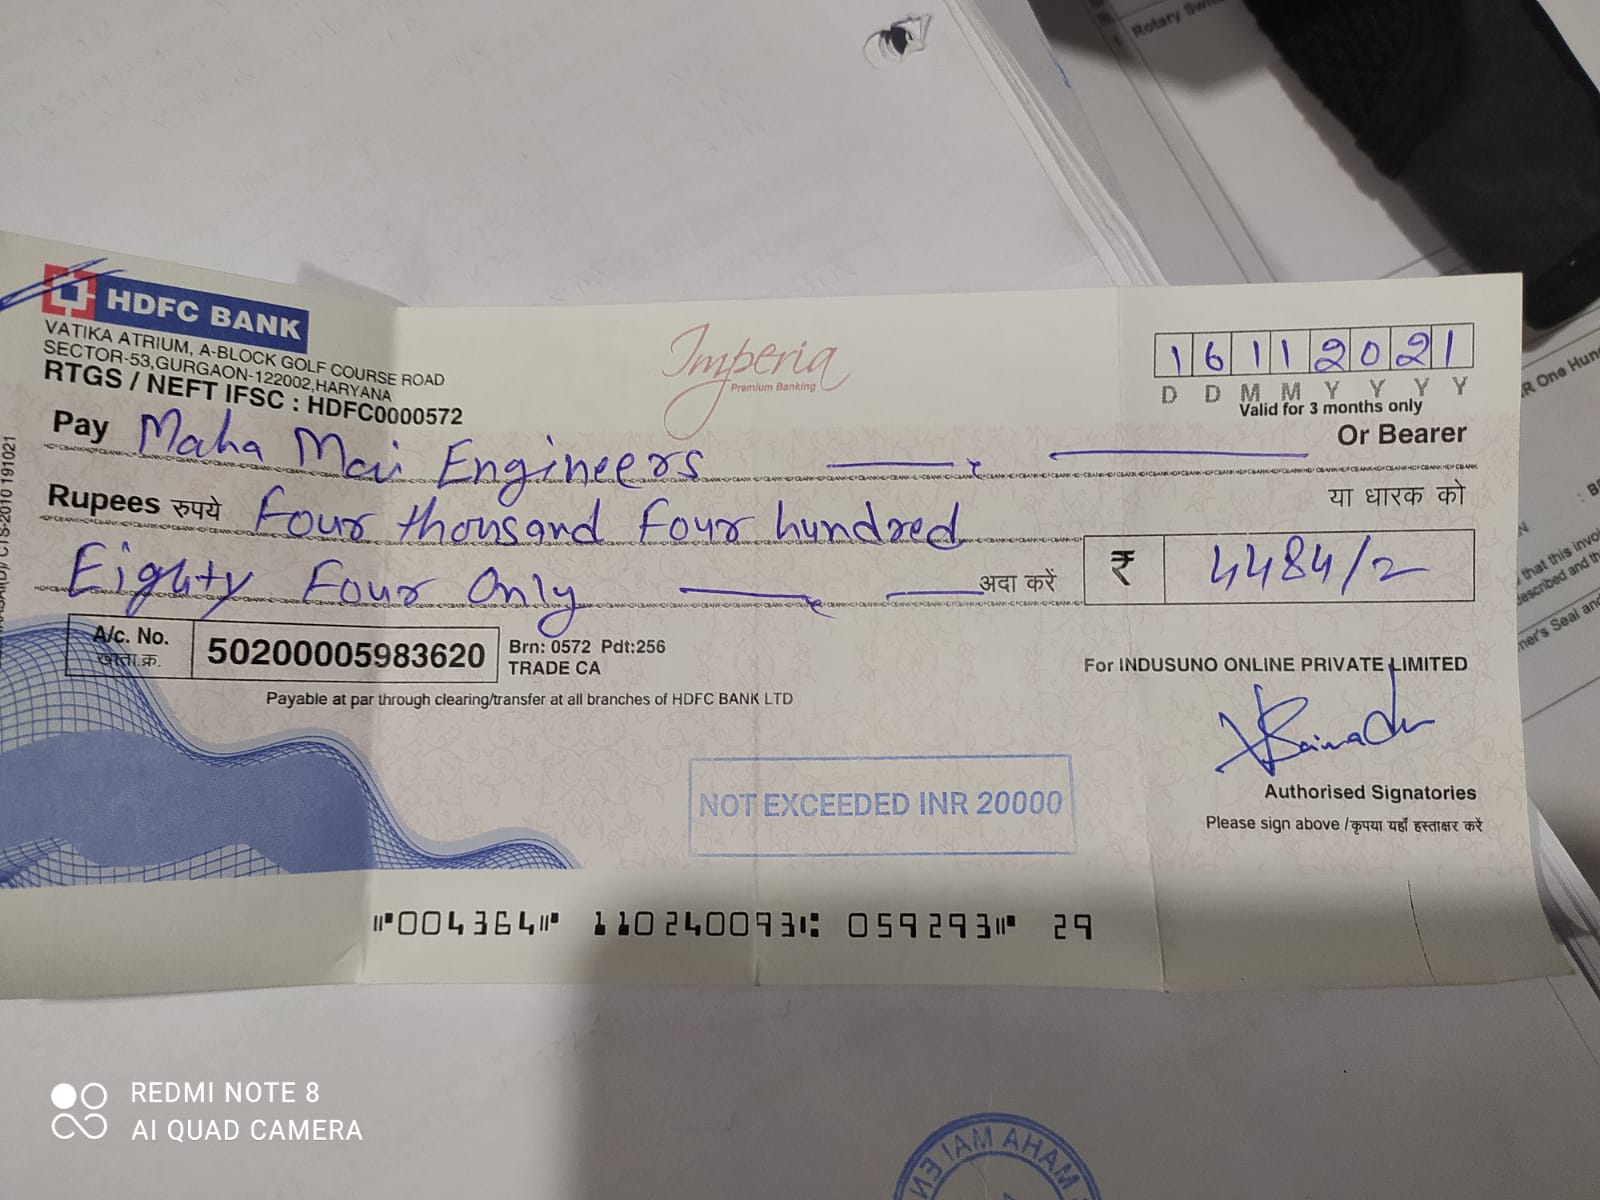 HDFC BANK
VATIKA ATRIUM, A-BLOCK GOLF COURSE ROAD
SECTOR-53,GURGAON-122002,HARYANA
RTGS / NEFT IFSC : HDFC0000572
Imperia
Premium Banking
1 6 1 1 2 0 2 1
D D M M Y Y Y Y
Valid for 3 months only
Pay Maha Mai Engineers Or Bearer
या धारक को
Rupees रुपये Four thousand Four hundred
Eighty Four Only अदा करें ₹ 4484/=
A/c. No.
खाता क्र.
50200005983620
Brn: 0572 Pdt:256
TRADE CA
Payable at par through clearing/transfer at all branches of HDFC BANK LTD
For INDUSUNO ONLINE PRIVATE LIMITED
NOT EXCEEDED INR 20000
Authorised Signatories
Please sign above /कृपया यहाँ हस्ताक्षर करें
⑈004364⑈ 110240093⑆ 059293⑈ 29
CTS-2010 191021
Rotary
R One
that this
described and the
Seal and
MAHA MAI
REDMI NOTE 8
AI QUAD CAMERA